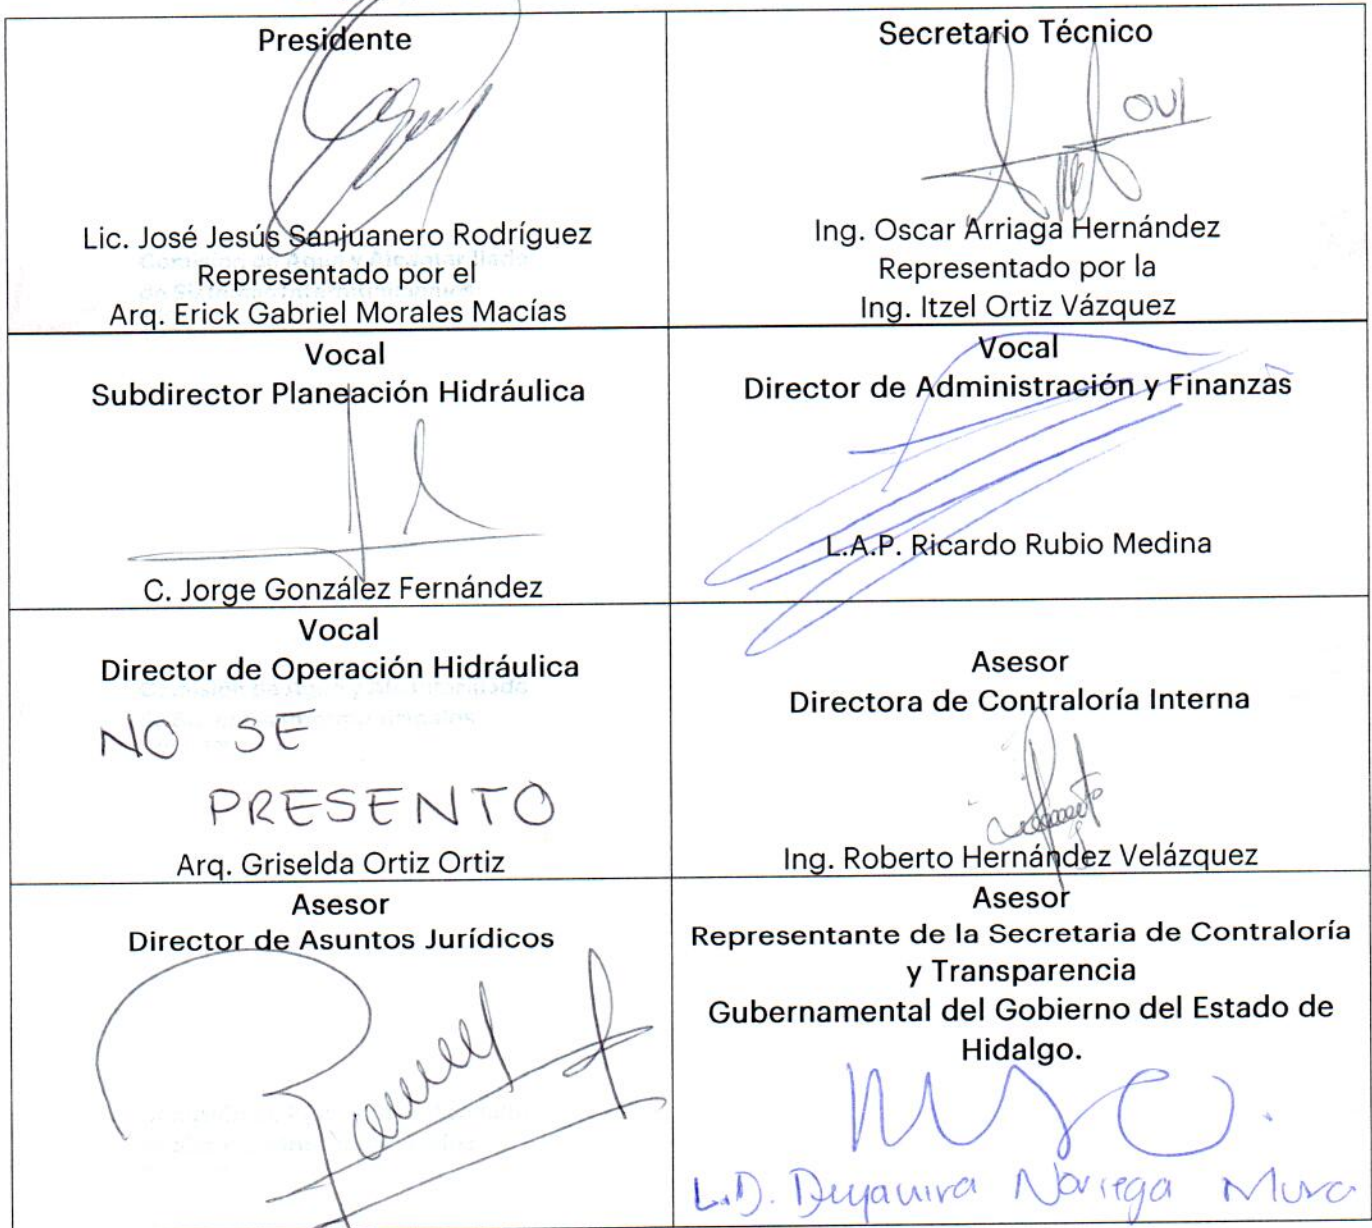 Presidente
Lic. José Jesús Sanjuanero Rodríguez
Representado por el
Arq. Erick Gabriel Morales Macías
Secretario Técnico
OVI
Ing. Oscar Arriaga Hernández
Representado por la
Ing. Itzel Ortiz Vázquez
Vocal
Subdirector Planeación Hidráulica
C. Jorge González Fernández
Vocal
Director de Administración y Finanzas
L.A.P. Ricardo Rubio Medina
Vocal
Director de Operación Hidráulica
NO SE
PRESENTO
Arq. Griselda Ortiz Ortiz
Asesor
Directora de Contraloría Interna
Ing. Roberto Hernández Velázquez
Asesor
Director de Asuntos Jurídicos
Asesor
Representante de la Secretaria de Contraloría
y Transparencia
Gubernamental del Gobierno del Estado de
Hidalgo.
L.D. Noriega